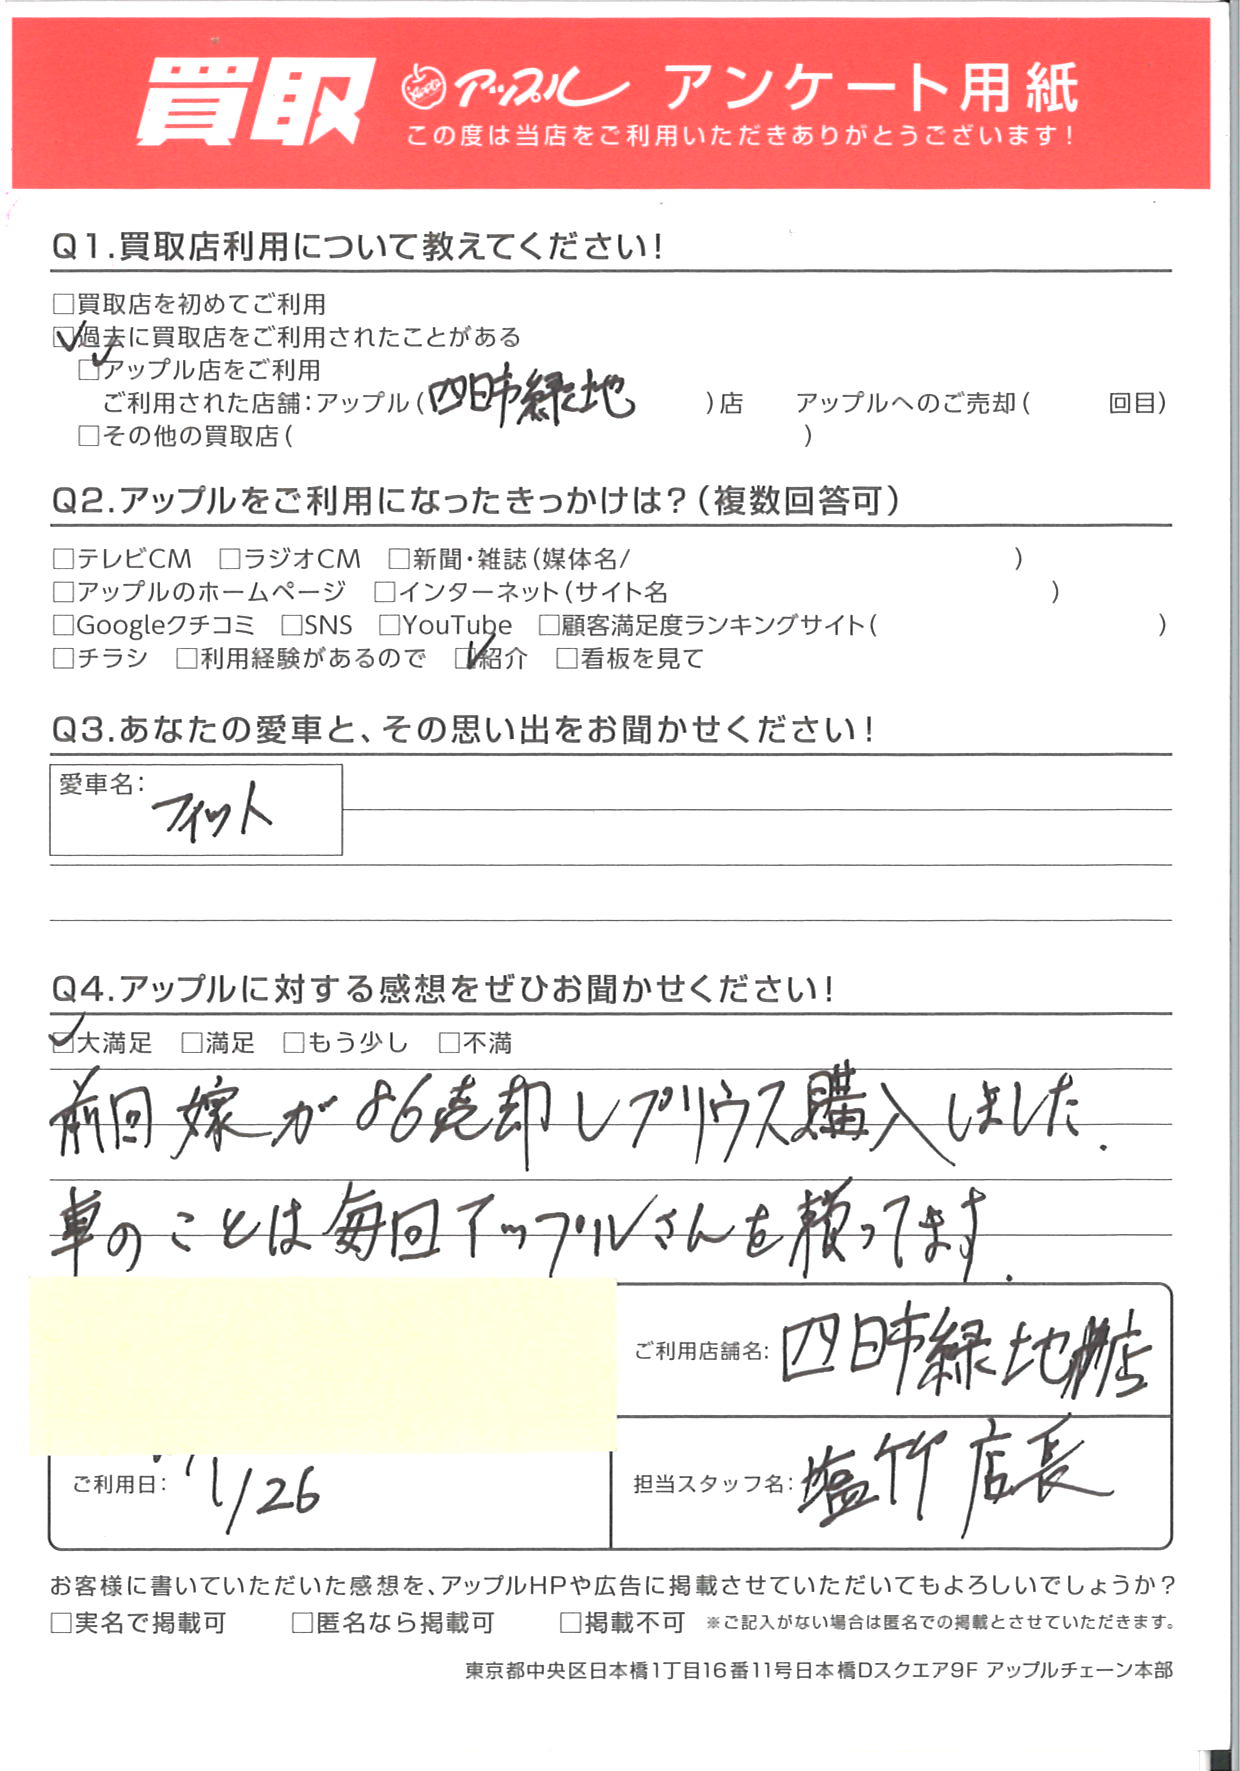 買取 アップル アンケート用紙
この度は当店をご利用いただきありがとうございます!
Q1.買取店利用について教えてください!
□買取店を初めてご利用
☑過去に買取店をご利用されたことがある
☑アップル店をご利用
ご利用された店舗:アップル(四日市緑地 )店 アップルへのご売却( 回目)
□その他の買取店( )
Q2.アップルをご利用になったきっかけは?(複数回答可)
□テレビCM □ラジオCM □新聞・雑誌(媒体名/ )
□アップルのホームページ □インターネット(サイト名 )
□Googleクチコミ □SNS □YouTube □顧客満足度ランキングサイト( )
□チラシ □利用経験があるので ☑紹介 □看板を見て
Q3.あなたの愛車と、その思い出をお聞かせください!
愛車名: フィット
Q4.アップルに対する感想をぜひお聞かせください!
☑大満足 □満足 □もう少し □不満
前回 嫁が86売却しプリウス購入しました.
車のことは毎回アップルさんを頼ってます.
ご利用店舗名: 四日市緑地店
ご利用日: 1/26
担当スタッフ名: 塩竹店長
お客様に書いていただいた感想を、アップルHPや広告に掲載させていただいてもよろしいでしょうか?
□実名で掲載可 □匿名なら掲載可 □掲載不可 ※ご記入がない場合は匿名での掲載とさせていただきます。
東京都中央区日本橋1丁目16番11号日本橋Dスクエア9F アップルチェーン本部